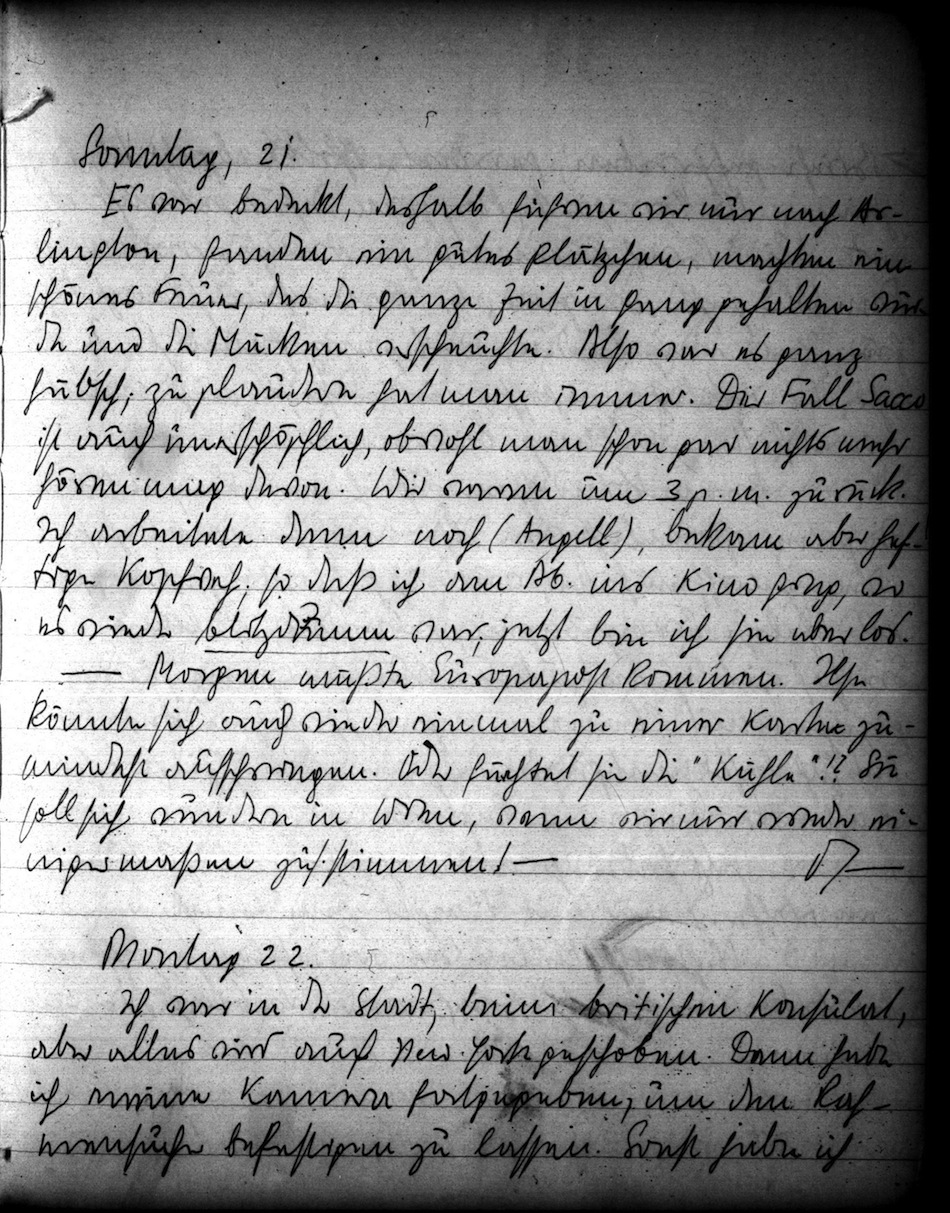 Sonntag, 21.
Es war bedeckt, deshalb fuhren wir nur nach Ar-
lington, fanden ein gutes Plätzchen, machten ein
schönes Feuer, das die ganze Zeit in gang gehalten wur-
de und die Mücken verscheuchte. Also war es ganz
hübsch; zu plaudern hat man immer. Der Fall Sacco
ist auch unerschöpflich, obwohl man schon gar nichts mehr
hören mag davon. Wir waren um 3 p. m. zurück.
Ich arbeitete dann noch (Angell), bekam aber hef-
tige Kopfweh, so daß ich am Ab. ins Kino ging, wo
es wieder blitzdumm war; jetzt bin ich sie aber los.
— Morgen müßte Europapost kommen. Ilse
könnte sich auch wieder einmal zu einer Karte zu-
mindest aufschwingen. Oder fürchtet sie die "Kühle"!? Sie
soll sich wundern in Wien, wenn wir nur wieder ei-
nigermaßen zus. stimmen! —
Montag 22.
Ich war in der Stadt, beim britischen Konsulat,
aber alles wird auf New York geschoben. Dann habe
ich meine Kamera fortgegeben, um den Rah-
mensucher befestigen zu lassen. Sonst habe ich